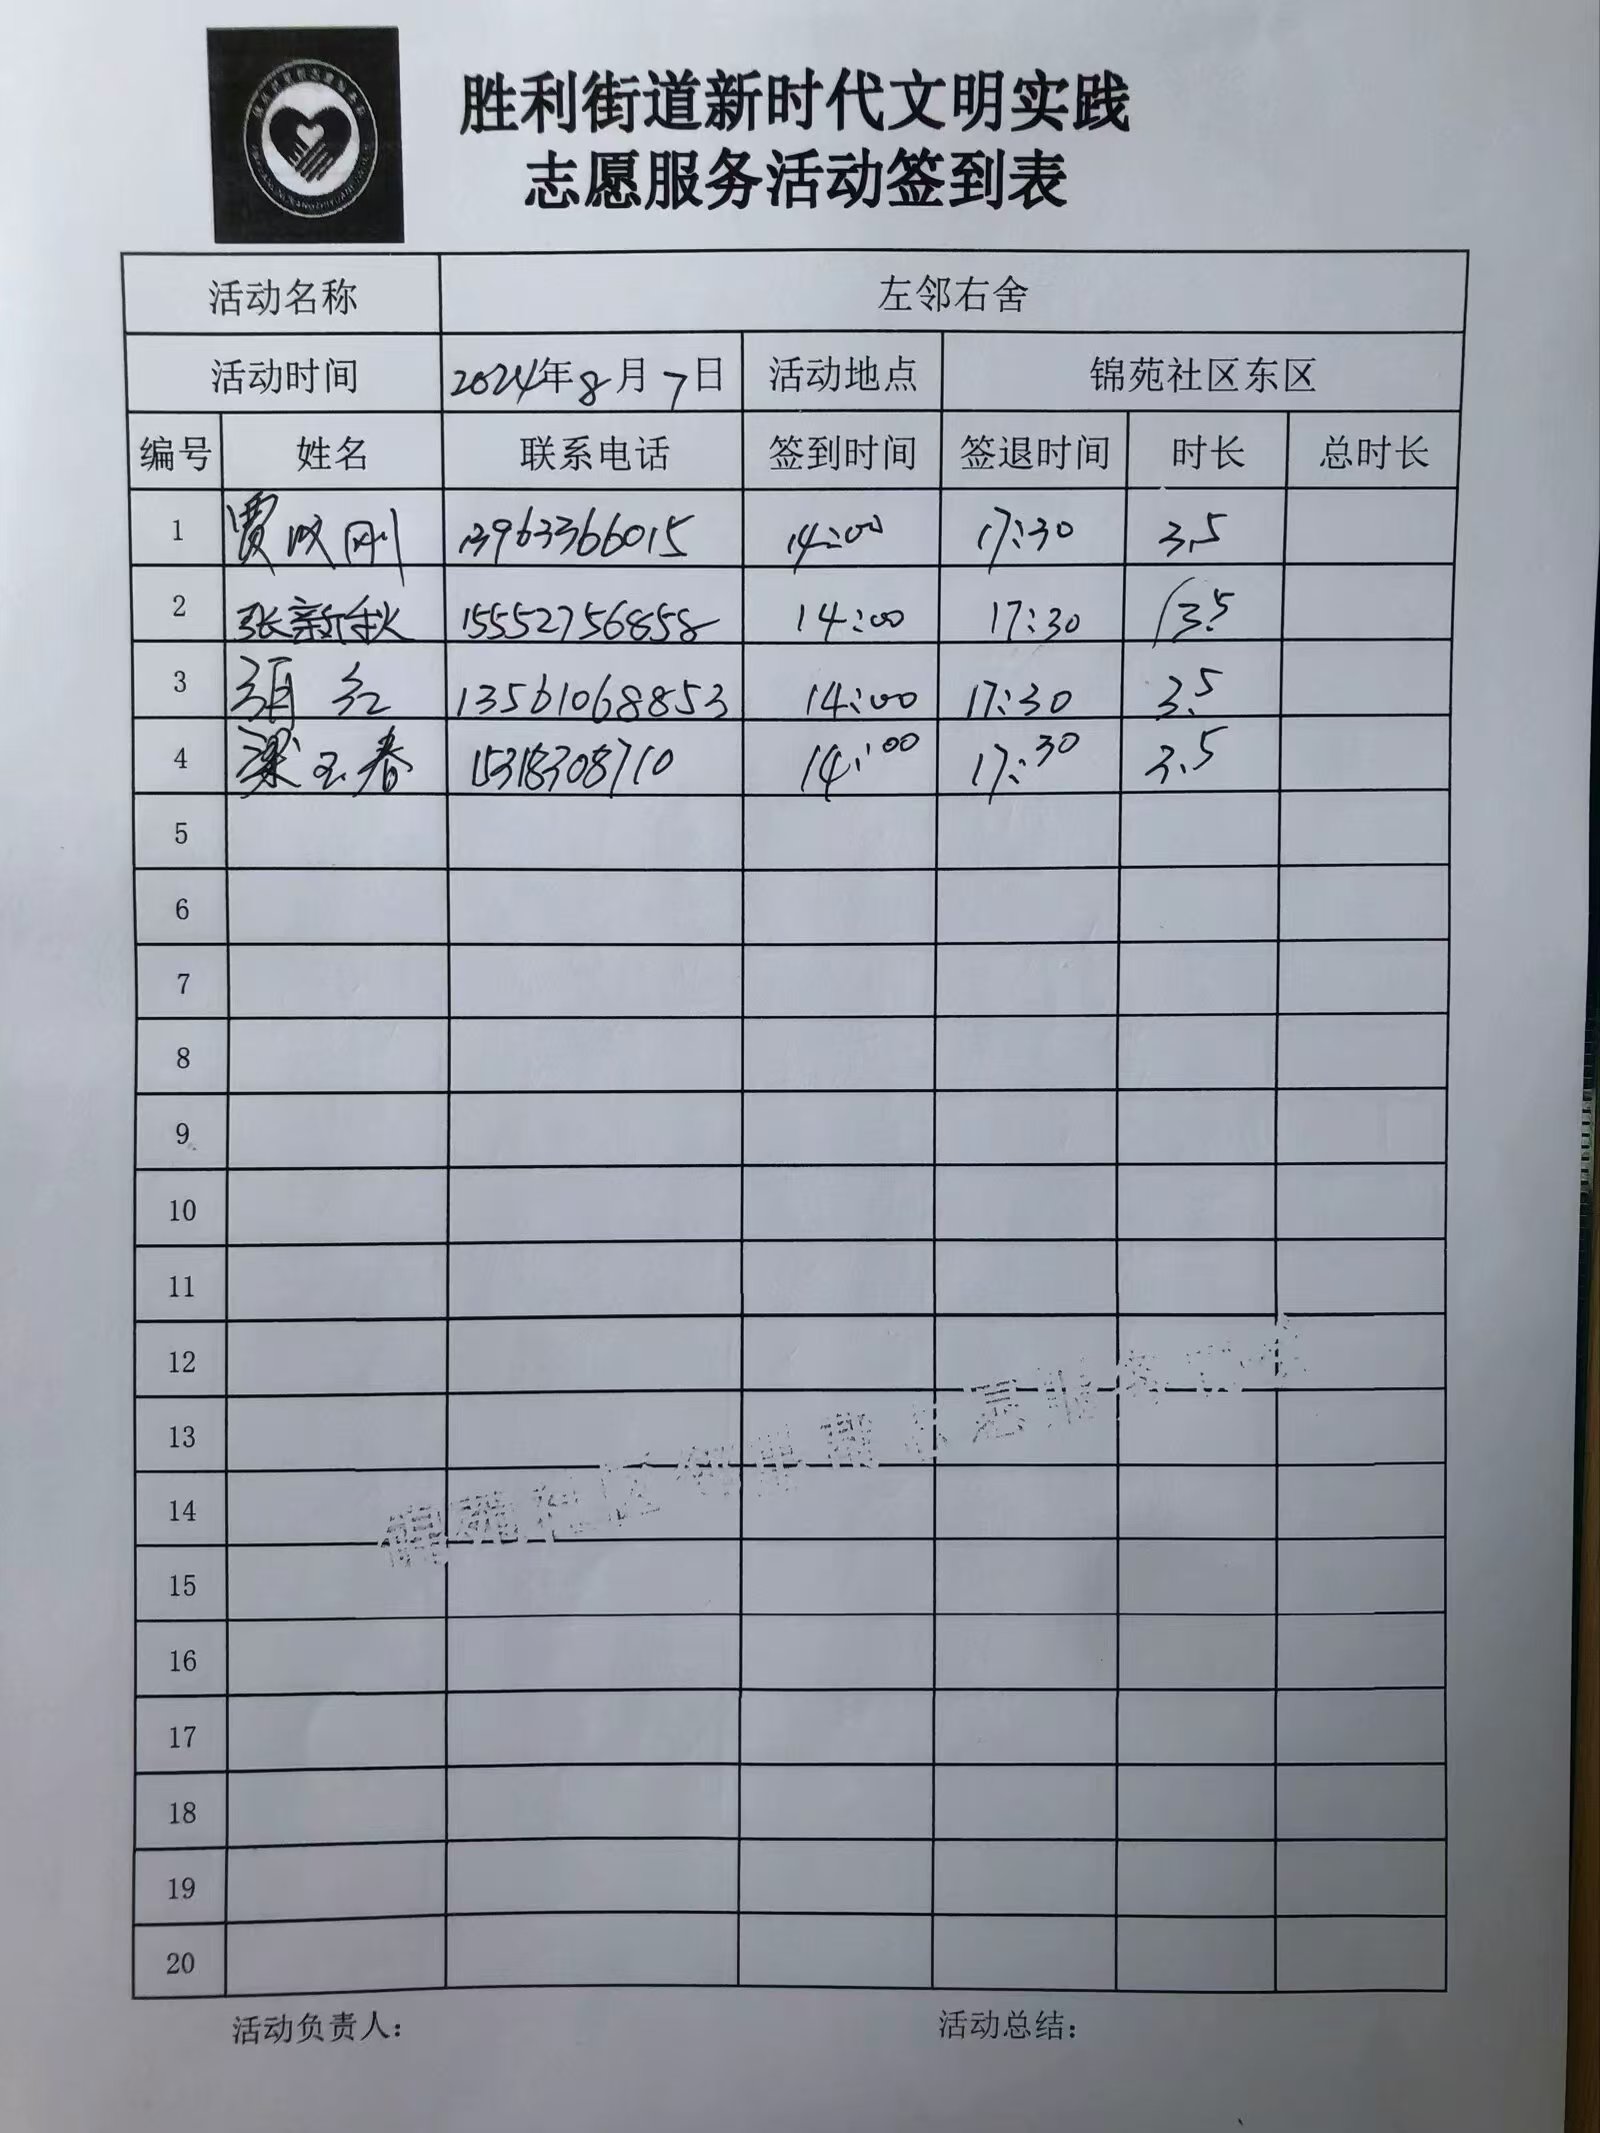 胜利街道新时代文明实践
志愿服务活动签到表
活动名称 左邻右舍
活动时间 2024年8月7日 活动地点 锦苑社区东区
编号 姓名 联系电话 签到时间 签退时间 时长 总时长
1 贾 刚 13963366015 14:00 17:30 3.5
2 张新秋 15552756858 14:00 17:30 3.5
3 红 13561068853 14:00 17:30 3.5
4 梁玉春 15318308710 14:00 17:30 3.5
5
6
7
8
9
10
11
12
13
14
15
16
17
18
19
20
锦苑社区 志愿服务
活动负责人： 活动总结：